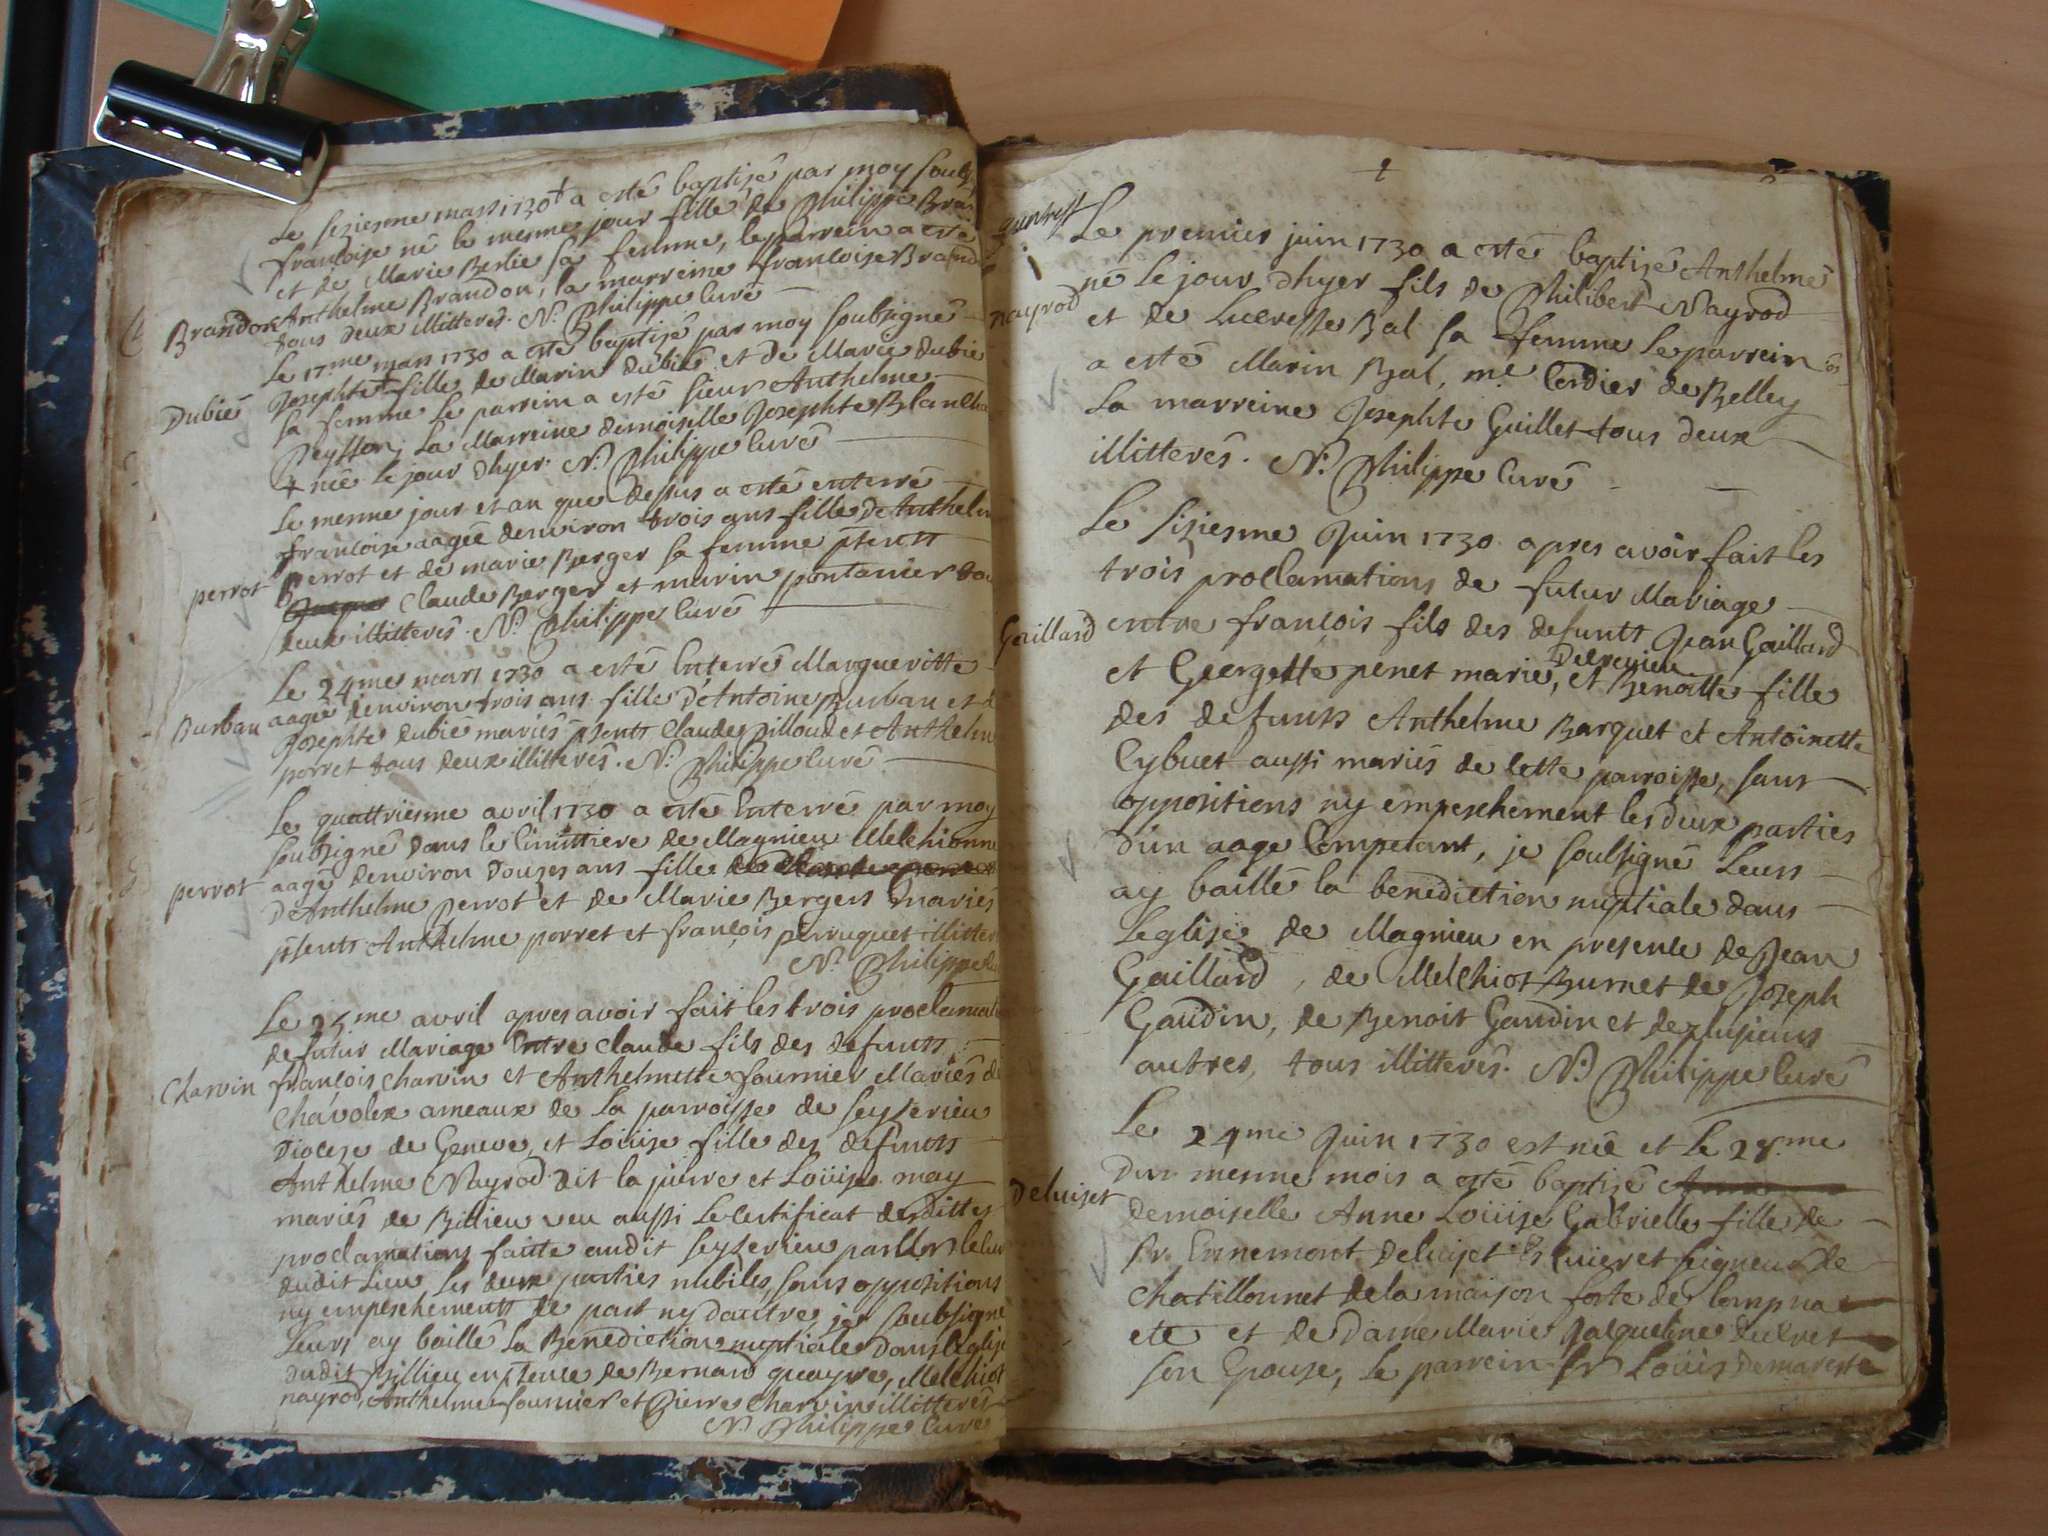 Le seziesme mars 1730 + a esté baptizé par moy soub
francoise né le mesme jour fille de Philippe Bran
et de Marie Berlie sa femme, le parrein a esté
Brandon Anthelme Brandon, la marreine francoise Brand
tous deux illitterés. N. Philippe Curé
Le 17me mars 1730 a esté baptisé par moy soubsigné
Dubié Josephte + fille de Marin Dubié et de Marie Dubie
sa femme le parrein a esté sieur Anthelme
Peysson, La Marreine demoiselle Josephte Blancha
+ née le jour d'hyer. N. Philippe Curé
Le mesme jour et an que dessus a esté enterré
francoise aagée denviron trois ans fille de Anthelm
perrot perrot et de marie Berger sa femme pnts
Claude Berger et marin pontanier tou
deux illitterés. N. Philippe Curé
Le 24me mars 1730 a esté Enterré Margueritte
Burban aagée denviron trois ans fille d'Antoine Burban et d
Josephte dubié mariés pnts Claude pilloud et Anthelm
porret tous deux illitterés. N. Philippe Curé
Le quattriesme avril 1730 a esté Enterré par moy
soubsigné dans le Cimittiere de Magnieu Melchionne
perrot aagé denviron douzes ans fille
D'Anthelme perrot et de Marie Bergers mariés
pnts Anthelme porret et françois perruquet illitter
N. Philippe Cu
Le 25.me avril apres avoir fait les trois proclamati
de futur Mariage Entre Claude fils des defunts
Charvin françois charvin et Anthelmette fournier Mariés de
Chavolex ameaux de La parroisse de Seyserieu
Diocese de Geneve, et Loüise fille des defunts
Anthelme Nayrod dit la pierre et Loüise may
mariés de Billieu veu aussi Le certificat desdittes
proclamations faitte audit Seyserieu par le Cur
dudit Lieu Les deux parties nubiles, sans oppositions
ny empeschements de part ny dautre, je soubsigné
Leurs ay baillé La Benediction nuptiale dans leglise
dudit Billieu en pnce de Bernard quayre, Melchiot
nayrod, Anthelme fournier et Pierre charvin illitterés
N. Philippe Curé
1
Le premier juin 1730 a esté baptizé Anthelme
nayrod né le jour d'hyer fils de Philibert Nayrod
et de Lucresse Bal sa femme Le parrein
a esté Marin Bal, me. Cordier de Belley
La marreine Josephte Guillet tous deux
illitterés. N. Philippe Curé
Le siziesme Juin 1730 apres avoir fait les
trois proclamations de futur Mariage
Gaillard entre françois fils des defunts Jean Gaillard
et Georgette penet marié, et Benoitte fille
des defunts Anthelme Barquet et Antoinette
Cybuet aussi mariés de cette parroisse, sans
oppositions ny empeschement les deux parties
d'un aage Competant, je soubsigné Leurs
ay baillé la benediction nuptiale dans
Leglise de Magnieu en presence de Jean
Gaillard, de Melchiot Burnet de Joseph
Gaudin, de Benoit Gaudin et de plusieurs
autres, tous illitterés. N. Philippe Curé
Le 24me Juin 1730 est née et le 28.me
du mesme mois a esté baptizé
Deluiset demoiselle Anne Loüise Gabrielle fille de
Sr. Ennemont Deluiset Escuier et seigneur de
chatillonnet de la maison forte de Compna
ete et de Dame Marie Jacqueline
son Epouse, Le parrein Sr Loüis Demareste